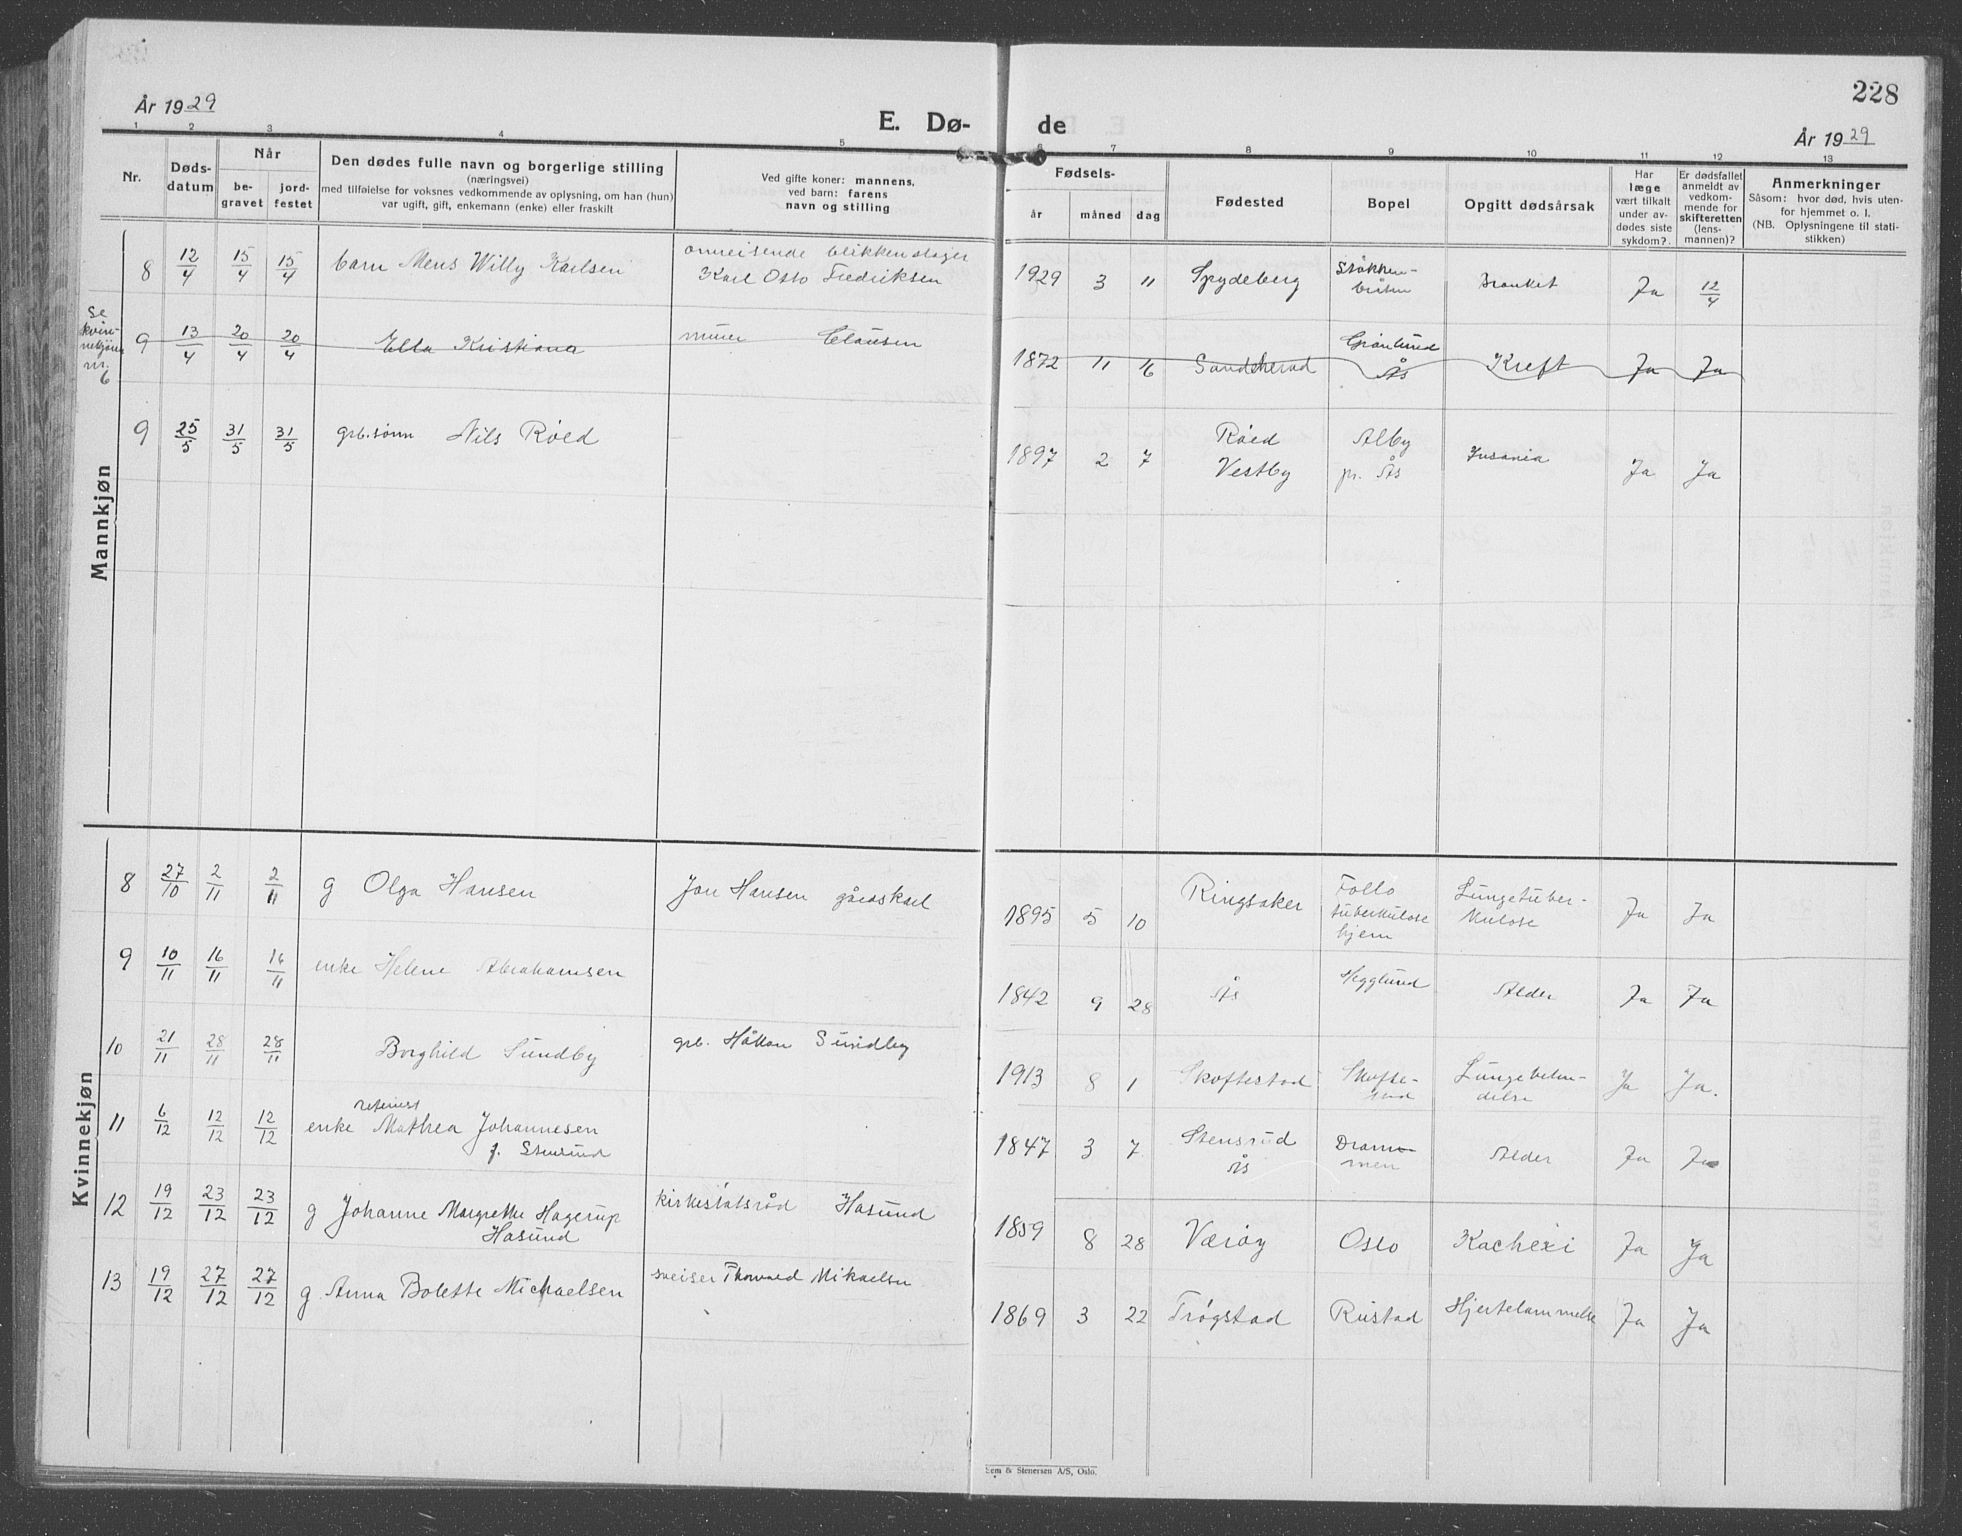 228
År 1929
E. Dø-
de
År 1929
1 2 3 4 5 6 7 8 9 10 11 12 13
Nr.
Døds-
datum
Når
be-
gravet
jord-
festet
Den dødes fulle navn og borgerlige stilling
(næringsvei)
med tilføielse for voksnes vedkommende av oplysning, om han (hun)
var ugift, gift, enkemann (enke) eller fraskilt
Ved gifte koner: mannens,
ved barn: farens
navn og stilling
Fødsels-
år
måned
dag
Fødested
Bopel
Opgitt dødsårsak
Har
læge
vært tilkalt
under av-
dødes siste
sykdom?
Er dødsfallet
anmeldt av
vedkom-
mende for
skifteretten
(lens-
mannen)?
Anmerkninger
Såsom: hvor død, hvis uten-
for hjemmet o. l.
(NB. Oplysningene til stati-
stikken)
Mannkjøn
8 12/4 15/4 15/4 barn Mens Willy Karlsen omreisende blikkenslager
Karl Osto Fredriksen 1929 3 11 Spydeberg Stokken-
bråten Bronkit Ja 12/4
Se
kvin-
nekjønn
nr.
6
9 13/4 20/4 20/4 Ella Kristiana murer Clausen 1872 11 16 Sandeherad Grønlund
Ås Kreft Ja Ja
9 25/5 31/5 31/5 grb.sønn Nils Røed 1897 2 7 Røed
Vestby Alby
pr. Ås Insania Ja Ja
Kvinnekjøn
8 27/10 2/11 2/11 g Olga Hansen Jon Hansen gårdskarl 1895 5 10 Ringsaker Follo
tuberkulose
hjem Lungetuber-
kulose Ja Ja
9 10/11 16/11 16/11 enke Helene Abrahamsen 1842 9 28 Ås Hegglund Alder Ja Ja
10 21/11 28/11 28/11 Borghild Sundby grb. Håkon Sundby 1913 8 1 Skoftestad Skofte-
stad Lungebeten-
delse Ja Ja.
11 6/12 12/12 12/12 enke Mathea Johannesen
f. Stensrud 1847 3 7 Stensrud
Ås Dram-
men Alder Ja Ja
12 19/12 23/12 23/12 g Johanne Margrethe Hagerup
Hasund kirkestatsråd Hasund 1859 8 28 Værøy Oslo Kachexi Ja Ja
13 19/12 27/12 27/12 g Anna Bolette Michaelsen sveiser Thorvald Mikaelsen 1869 3 22 Trøgstad Rustad Hjertelammelse Ja Ja
Sem & Stenersen A/S, Oslo.